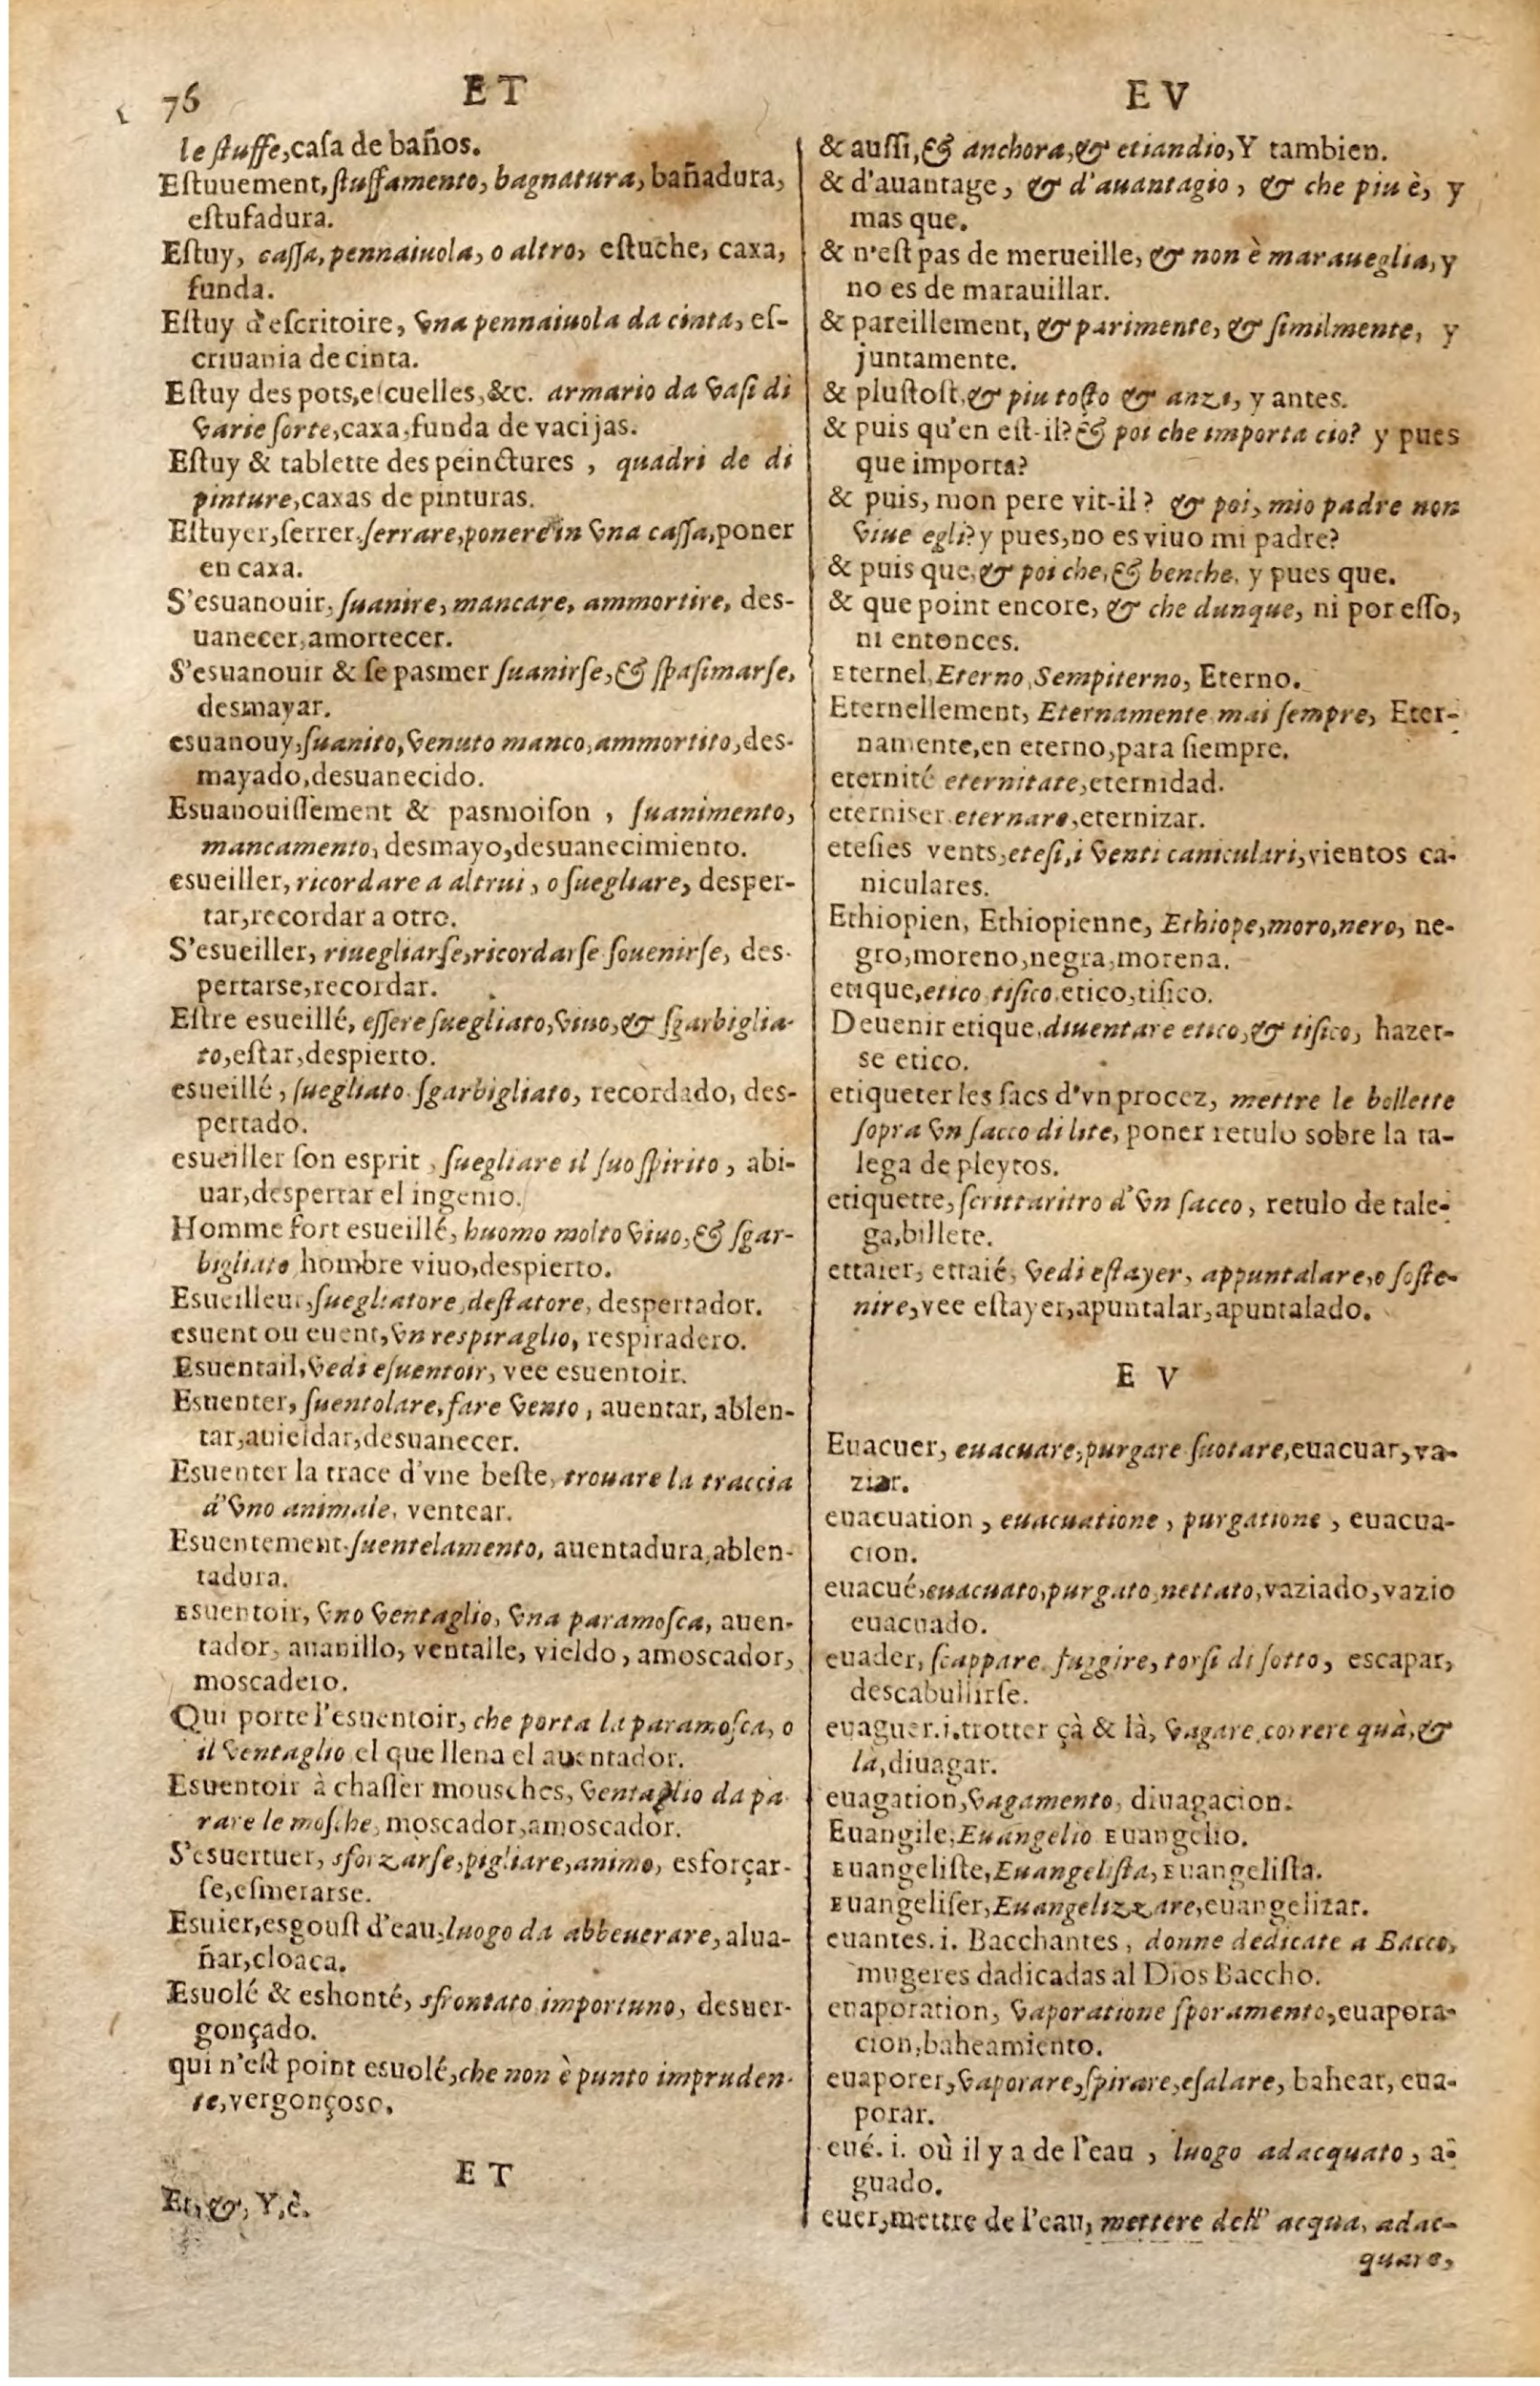 76
ET
EV
le ſtuffe, caſa de baños.
Eſtuuement, ſtuffamento, bagnatura, bañadura,
eſtufadura.
Eſtuy, caſſa, pennaiuola, o altro, eſtuche, caxa,
funda.
Eſtuy d'eſcritoire, vna pennaiuola da cinta, eſ-
criuania de cinta.
Eſtuy des pots, eſcuelles, &c. armario da vaſi di
varie ſorte, caxa, funda de vacijas.
Eſtuy & tablette des peinctures , quadri de di
pinture, caxas de pinturas.
Eſtuyer, ſerrer, ſerrare, ponere in vna caſſa, poner
en caxa.
S'esuanouir, ſuanire, mancare, ammortire, des-
uanecer, amortecer.
S'esuanouir & ſe pasmer ſuanirſe, & ſpaſimarſe,
desmayar.
esuanouy, ſuanito, venuto manco, ammortito, des-
mayado, desuanecido.
Esuanouiſſement & pasmoiſon , ſuanimento,
mancamento, desmayo, desuanecimiento.
esueiller, ricordare a altrui, o ſuegliare, desper-
tar, recordar a otro.
S'esueiller, riuegliarſe, ricordarſe ſouenirſe, des-
pertarse, recordar.
Eſtre esueillé, eſſere ſuegliato, viuo, & ſgarbiglia-
to, eſtar, despierto.
esueillé, ſuegliato ſgarbigliato, recordado, des-
pertado.
esueiller ſon esprit , ſuegliare il ſuo ſpirito , abi-
uar, despertar el ingenio.
Homme fort esueillé, huomo molto viuo, & ſgar-
bigliato hombre viuo, despierto.
Esueilleur, ſuegliatore, deſtatore, despertador.
esuent ou euent, vn respiraglio, respiradero.
Esuentail, vedi eſuentoir, vee esuentoir.
Esuenter, ſuentolare, fare vento , auentar, ablen-
tar, auieldar, desuanecer.
Esuenter la trace d'vne beſte, trouare la traccia
d'vno animale, ventear.
Esuentement. ſuentelamento, auentadura, ablen-
tadura.
Esuentoir, vno ventaglio, vna paramoſca, auen-
tador, auanillo, ventalle, vieldo, amoscador,
moscadero.
Qui porte l'esuentoir, che porta la paramoſca, o
il ventaglio el que llena el auentador.
Esuentoir à chaſſer mousches, ventaglio da pa
rare le moſche, moscador, amoscador.
S'esuertuer, sforzarſe, pigliare, animo, esforçar-
ſe, eſmerarse.
Esuier, esgouſt d'eau, luogo da abbeuerare, alua-
ñar, cloaca.
Esuolé & eshonté, sfrontato importuno, desuer-
gonçado.
qui n'eſt point esuolé, che non è punto impruden-
te, vergonçoso.
ET
Et, &, Y, è.
& auſſi, & anchora, & etiandio, Y tambien.
& d'auantage, & d'auantagio , & che piu è, y
mas que.
& n'eſt pas de merueille, & non è maraueglia, y
no es de marauillar.
& pareillement, & parimente, & ſimilmente, y
juntamente.
& pluſtoſt, & piu toſto & anzi, y antes.
& puis qu'en eſt-il? & poi che importa cio? y pues
que importa?
& puis, mon pere vit-il? & poi, mio padre non
viue egli? y pues, no es viuo mi padre?
& puis que, & poi che, & benche, y pues que.
& que point encore, & che dunque, ni por eſſo,
ni entonces.
Eternel, Eterno, Sempiterno, Eterno.
Eternellement, Eternamente mai ſempre, Eter-
namente, en eterno, para ſiempre.
eternité eternitate, eternidad.
eterniser eternare, eternizar.
eteſies vents, eteſi, i venti caniculari, vientos ca-
niculares.
Ethiopien, Ethiopienne, Ethiope, moro, nero, ne-
gro, moreno, negra, morena.
etique, etico tiſico, etico, tiſico.
Deuenir etique, diuentare etico, & tiſico, hazer-
se etico.
etiqueter les ſacs d'vn procez, mettre le bollette
ſopra vn ſacco di lite, poner retulo sobre la ta-
lega de pleytos.
etiquette, ſcrittaritro d'vn ſacco, retulo de tale-
ga, billete.
ettaier, ettaié, vedi eſtayer, appuntalare, o ſoſte-
nire, vee eſtayer, apuntalar, apuntalado.
EV
Euacuer, euacuare, purgare ſuotare, euacuar, va-
ziar.
euacuation , euacuatione , purgatione , euacua-
cion.
euacué, euacuato, purgato, nettato, vaziado, vazio
euacuado.
euader, ſcappare. fuggire, torſi di ſotto, escapar,
descabullirſe.
euaguer. i. trotter çà & là, vagare, correre quà, &
la, diuagar.
euagation, vagamento, diuagacion.
Euangile, Euangelio Euangelio.
Euangeliſte, Euangeliſta, Euangeliſta.
Euangeliſer, Euangelizzare, euangelizar.
euantes. i. Bacchantes, donne dedicate a Bacco,
mugeres dadicadas al Dios Baccho.
euaporation, vaporatione ſporamento, euapora-
cion, baheamiento.
euaporer, vaporare, ſpirare, eſalare, bahear, eua-
porar.
eué. i. où il y a de l'eau , luogo adacquato , a-
guado.
euer, mettre de l'eau, mettere dell' acqua, adac-
quare,